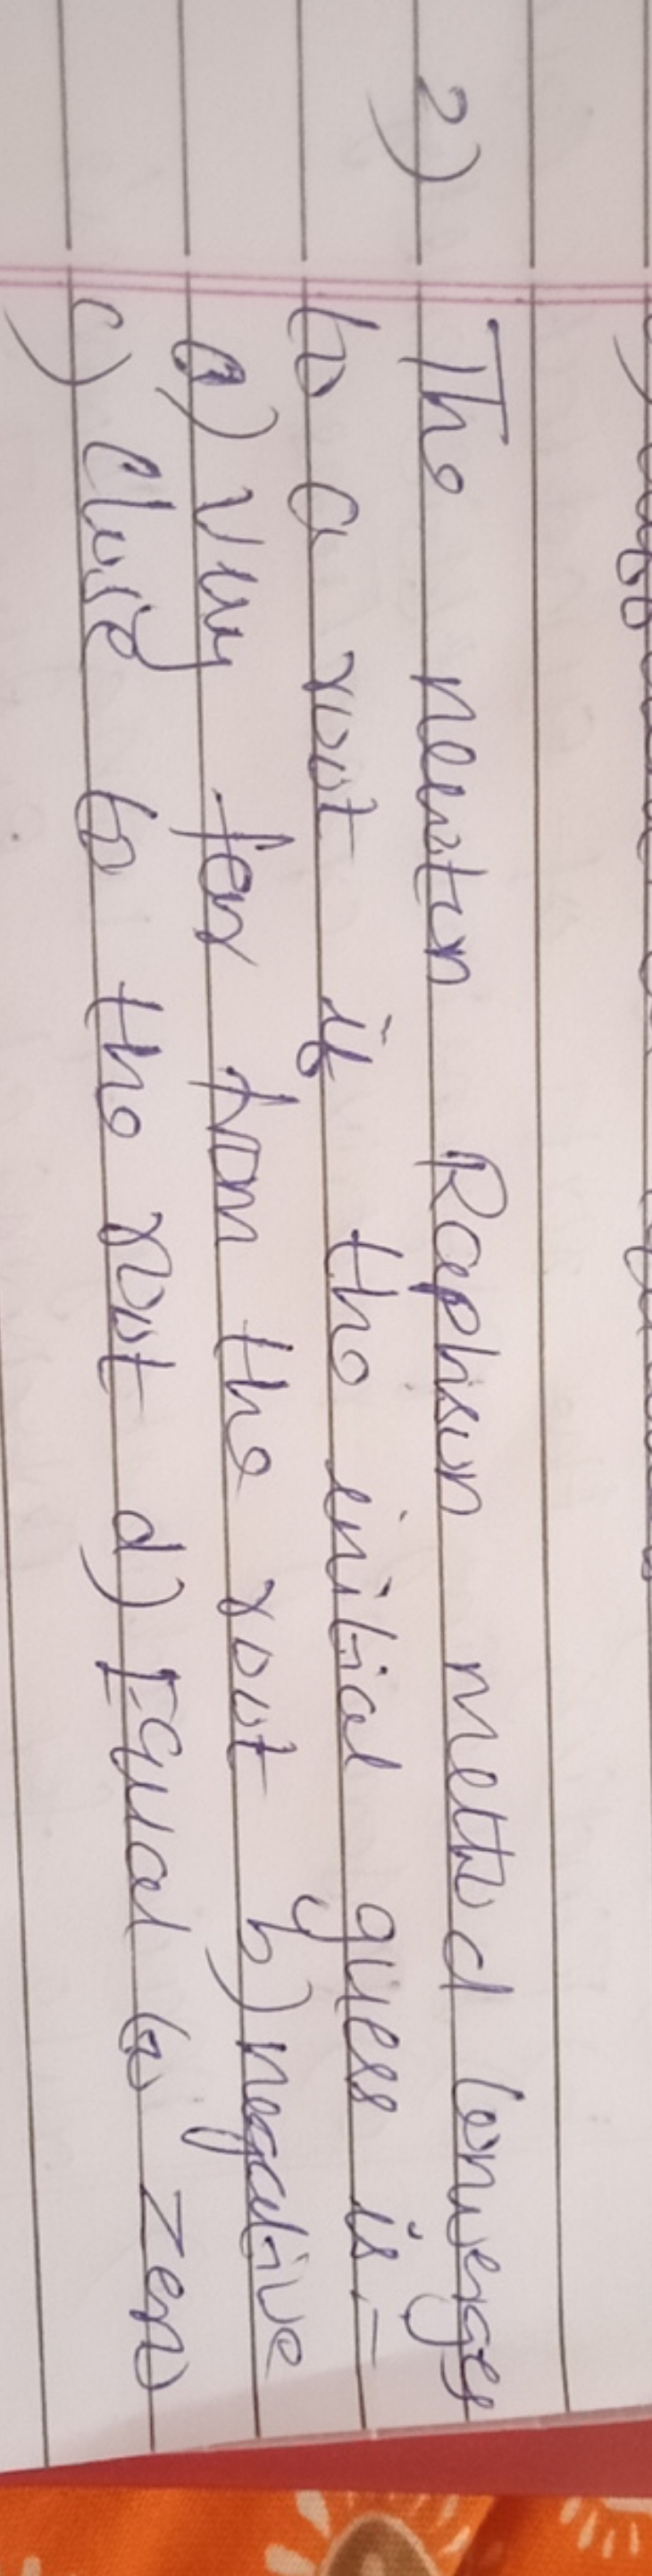 2) The newton Raphson method Converges
to a root if the initial guess is -
a) Very far from the root b) negative
c) Close to the root d) Equal to zero